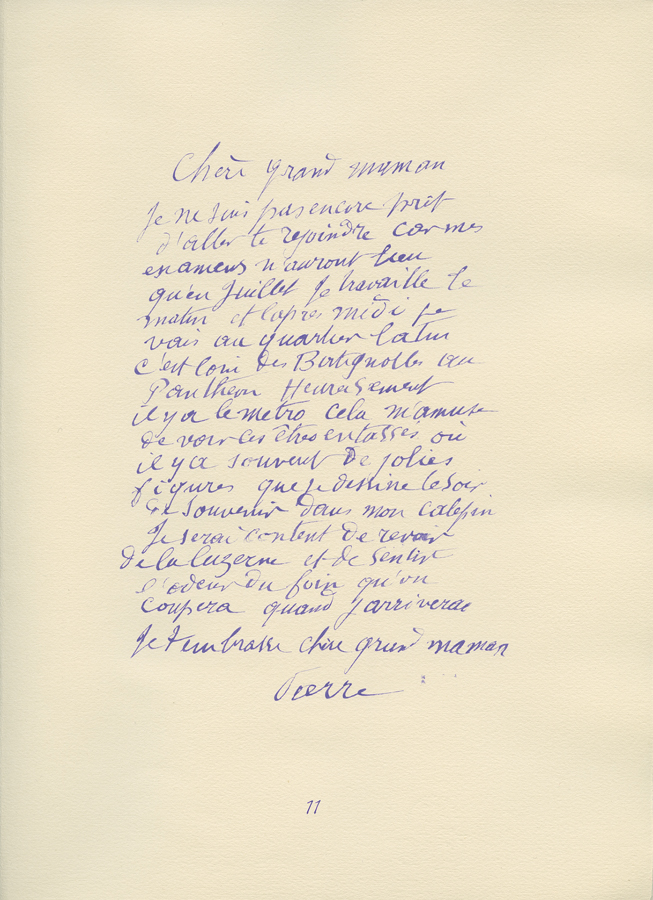 Chère grand maman
Je ne suis pas encore prêt
d'aller te rejoindre car mes
examens n'auront lieu
qu'en Juillet Je travaille le
matin et l'après midi je
vais au quartier latin
c'est loin des Batignolles au
Pantheon Heureusement
il y a le metro cela m'amuse
de voir ces êtres entassés où
il y a souvent de jolies
figures que je dessine le soir
de souvenir dans mon calepin
Je serai content de revoir
de la luzerne et de sentir
l'odeur du foin qu'on
coupera quand j'arriverai
Je t'embrasse chère grand maman
Pierre
11